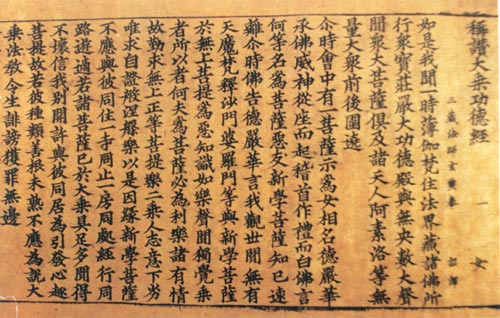 稱讚大乘功德經 一 女
三藏法師玄奘奉 詔譯
如是我聞一時薄伽梵住法界藏諸佛所
行衆寶莊嚴大功德殿與無央數大聲
聞衆大菩薩俱及諸天人阿素洛等無
量大衆前後圍遶
尒時會中有一菩薩示為女相名德嚴華
承佛威神從座而起稽首作禮而白佛言
何等名為菩薩惡友新學菩薩知已速
離尒時佛告德嚴華言我觀世間無有
天魔梵釋沙門婆羅門等與新學菩薩
於無上菩提為惡知識如樂聲聞獨覺乘
者所以者何夫為菩薩必為利樂諸有情
故勤求無上正等菩提樂二乘人志意下劣
唯求自證般涅槃樂以是因緣新學菩薩
不應與彼同住一寺同止一房同處經行同
路遊適若諸菩薩已於大乘具足多聞得
不壞信我別開許與彼同居為引發心趣
菩提故若彼種類善根未熟不應為說大
乘法教令生誹謗獲罪無邊